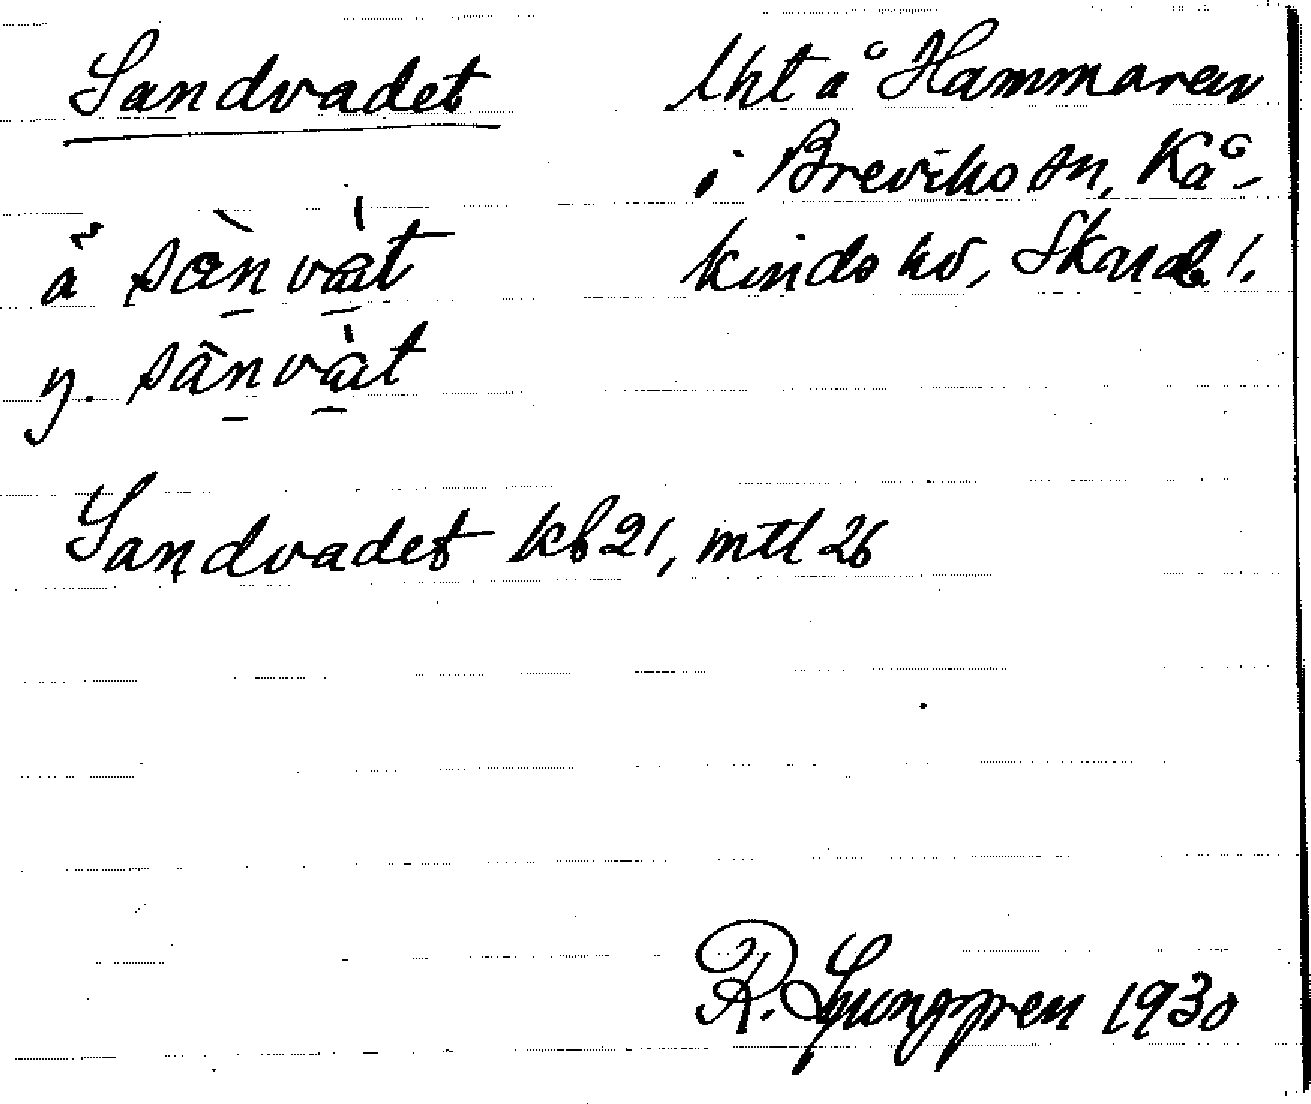 Sandvadet
lht å Hammaren
i Breviks sn, Kå-
kinds hd, Skarab. l.
å sànvàt
y. sànvàt
Sandvadet kb 21, mtl 26
R. Ljunggren 1930